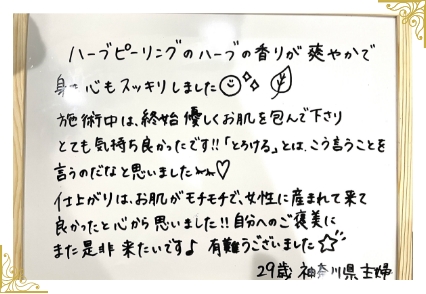 ハーブピーリングのハーブの香りが爽やかで
身も心もスッキリしました
施術中は、終始優しくお肌を包んで下さり
とても気持ち良かったです!!「とろける」とは、こう言うことを
言うのだなと思いました♡
仕上がりは、お肌がモチモチで、女性に産まれて来て
良かったと心から思いました!!自分へのご褒美に
また是非来たいです♪ 有難うございました☆
29歳 神奈川県 主婦